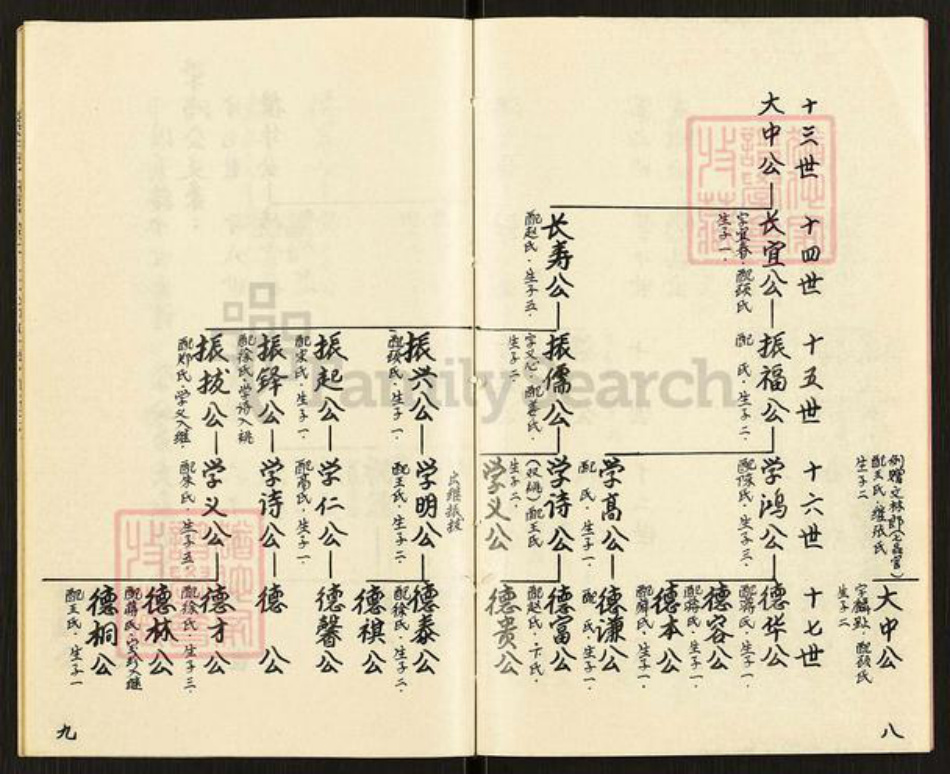 例赠文林郎(七品官)
配王氏·继张氏
生子二
大中公
字麟趾·配顾氏
生子二
八
十三世
大中公
十四世
长宜公
字宜春·配顾氏
生子一·
长寿公
配赵氏·生子五·
十五世
振福公
配 氏·生子二·
振儒公
字义心·配姜氏·
生子二
振兴公
配顾氏·生子一·
振起公
配宋氏·生子一·
振铎公
配徐氏·学诗入祧
振拔公
配郑氏·学义入继·
十六世
学鸿公
配陈氏·生子三·
学高公
配 氏·生子一·
学诗公
(双祧)配王氏
生子二·
学义公
出继振拔
学明公
配王氏·生子二·
学仁公
配高氏·生子一·
学诗公
学义公
配朱氏·生子五·
十七世
德华公
配蒋氏·生子一·
德容公
配蒋氏·生子一·
德本公
德谦公
配 氏·生子一·
德富公
配赵氏·卞氏·
德贵公
德泰公
配徐氏·生子二·
德祺公
德馨公
德 公
德才公
配徐氏·生子三·
德林公
德桐公
配王氏·生子一
九
FamilySearch